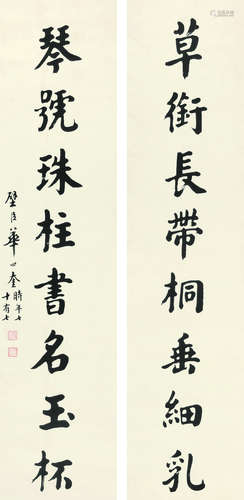 草銜長帶桐垂細乳
琴號珠柱書名玉杯
璧臣華世奎時年七
十有七